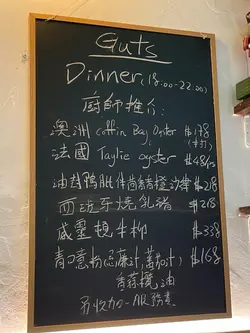 Guts
Dinner (18:00-22:00)
廚師推介:
澳洲 Coffin Bay Oyster $178
法國 Taylie oyster $48/pc
油封鴨肶伴尚青香橙沙律 $218
西班牙燒乳豬 $218
威靈頓牛柳 $338
青口意粉 $168
青蒜欖油
另收加一服務費